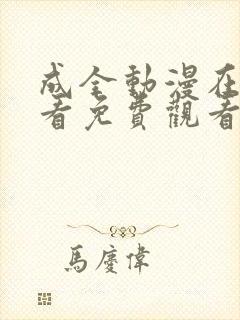 成全動漫在
看免費觀看
馬慶偉